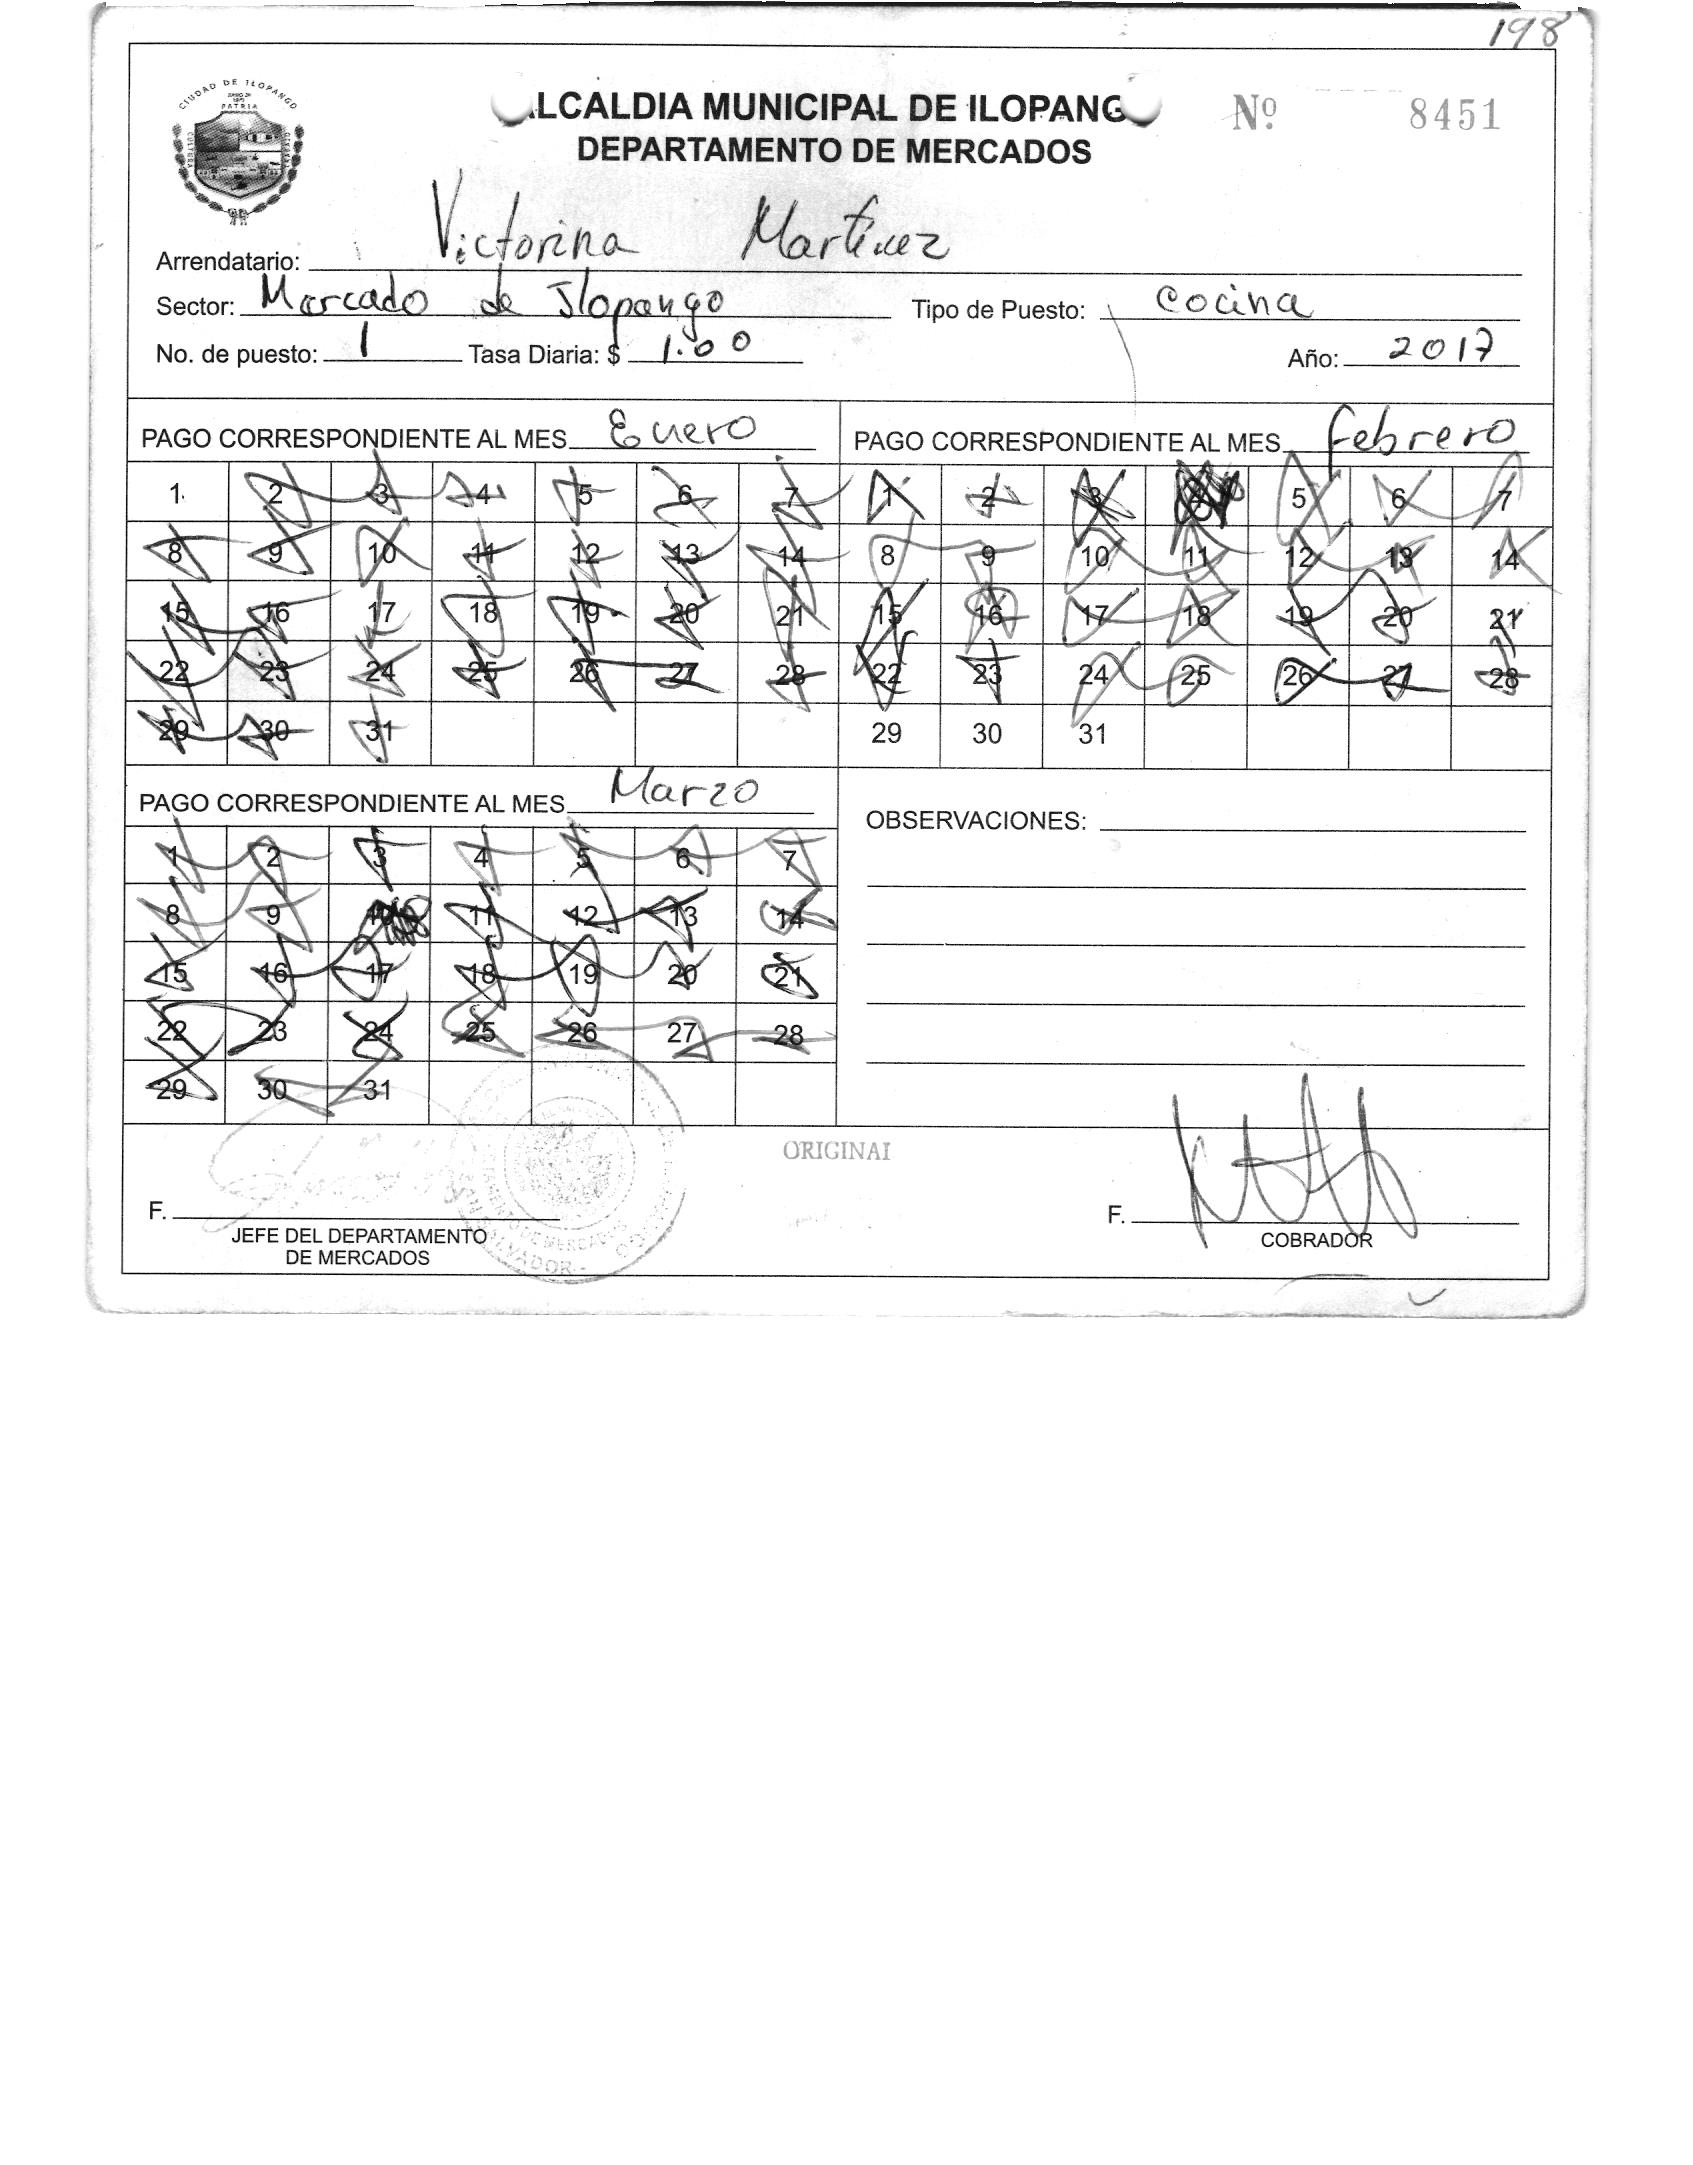 198
CIUDAD DE ILOPANGO
PATRIA
CULTURA
LCALDIA MUNICIPAL DE ILOPANG
Nº 8451
DEPARTAMENTO DE MERCADOS
Arrendatario: Victorina Martínez
Sector: Mercado de Ilopango Tipo de Puesto: Cocina
No. de puesto: 1 Tasa Diaria: $ 1.00 Año: 2017
PAGO CORRESPONDIENTE AL MES Enero
1 2 3 4 5 6 7
8 9 10 11 12 13 14
15 16 17 18 19 20 21
22 23 24 25 26 27 28
29 30 31
PAGO CORRESPONDIENTE AL MES febrero
1 2 3 4 5 6 7
8 9 10 11 12 13 14
15 16 17 18 19 20 21
22 23 24 25 26 27 28
29 30 31
PAGO CORRESPONDIENTE AL MES Marzo
1 2 3 4 5 6 7
8 9 10 11 12 13 14
15 16 17 18 19 20 21
22 23 24 25 26 27 28
29 30 31
OBSERVACIONES:
ORIGINAL
F.
JEFE DEL DEPARTAMENTO
DE MERCADOS
F.
COBRADOR